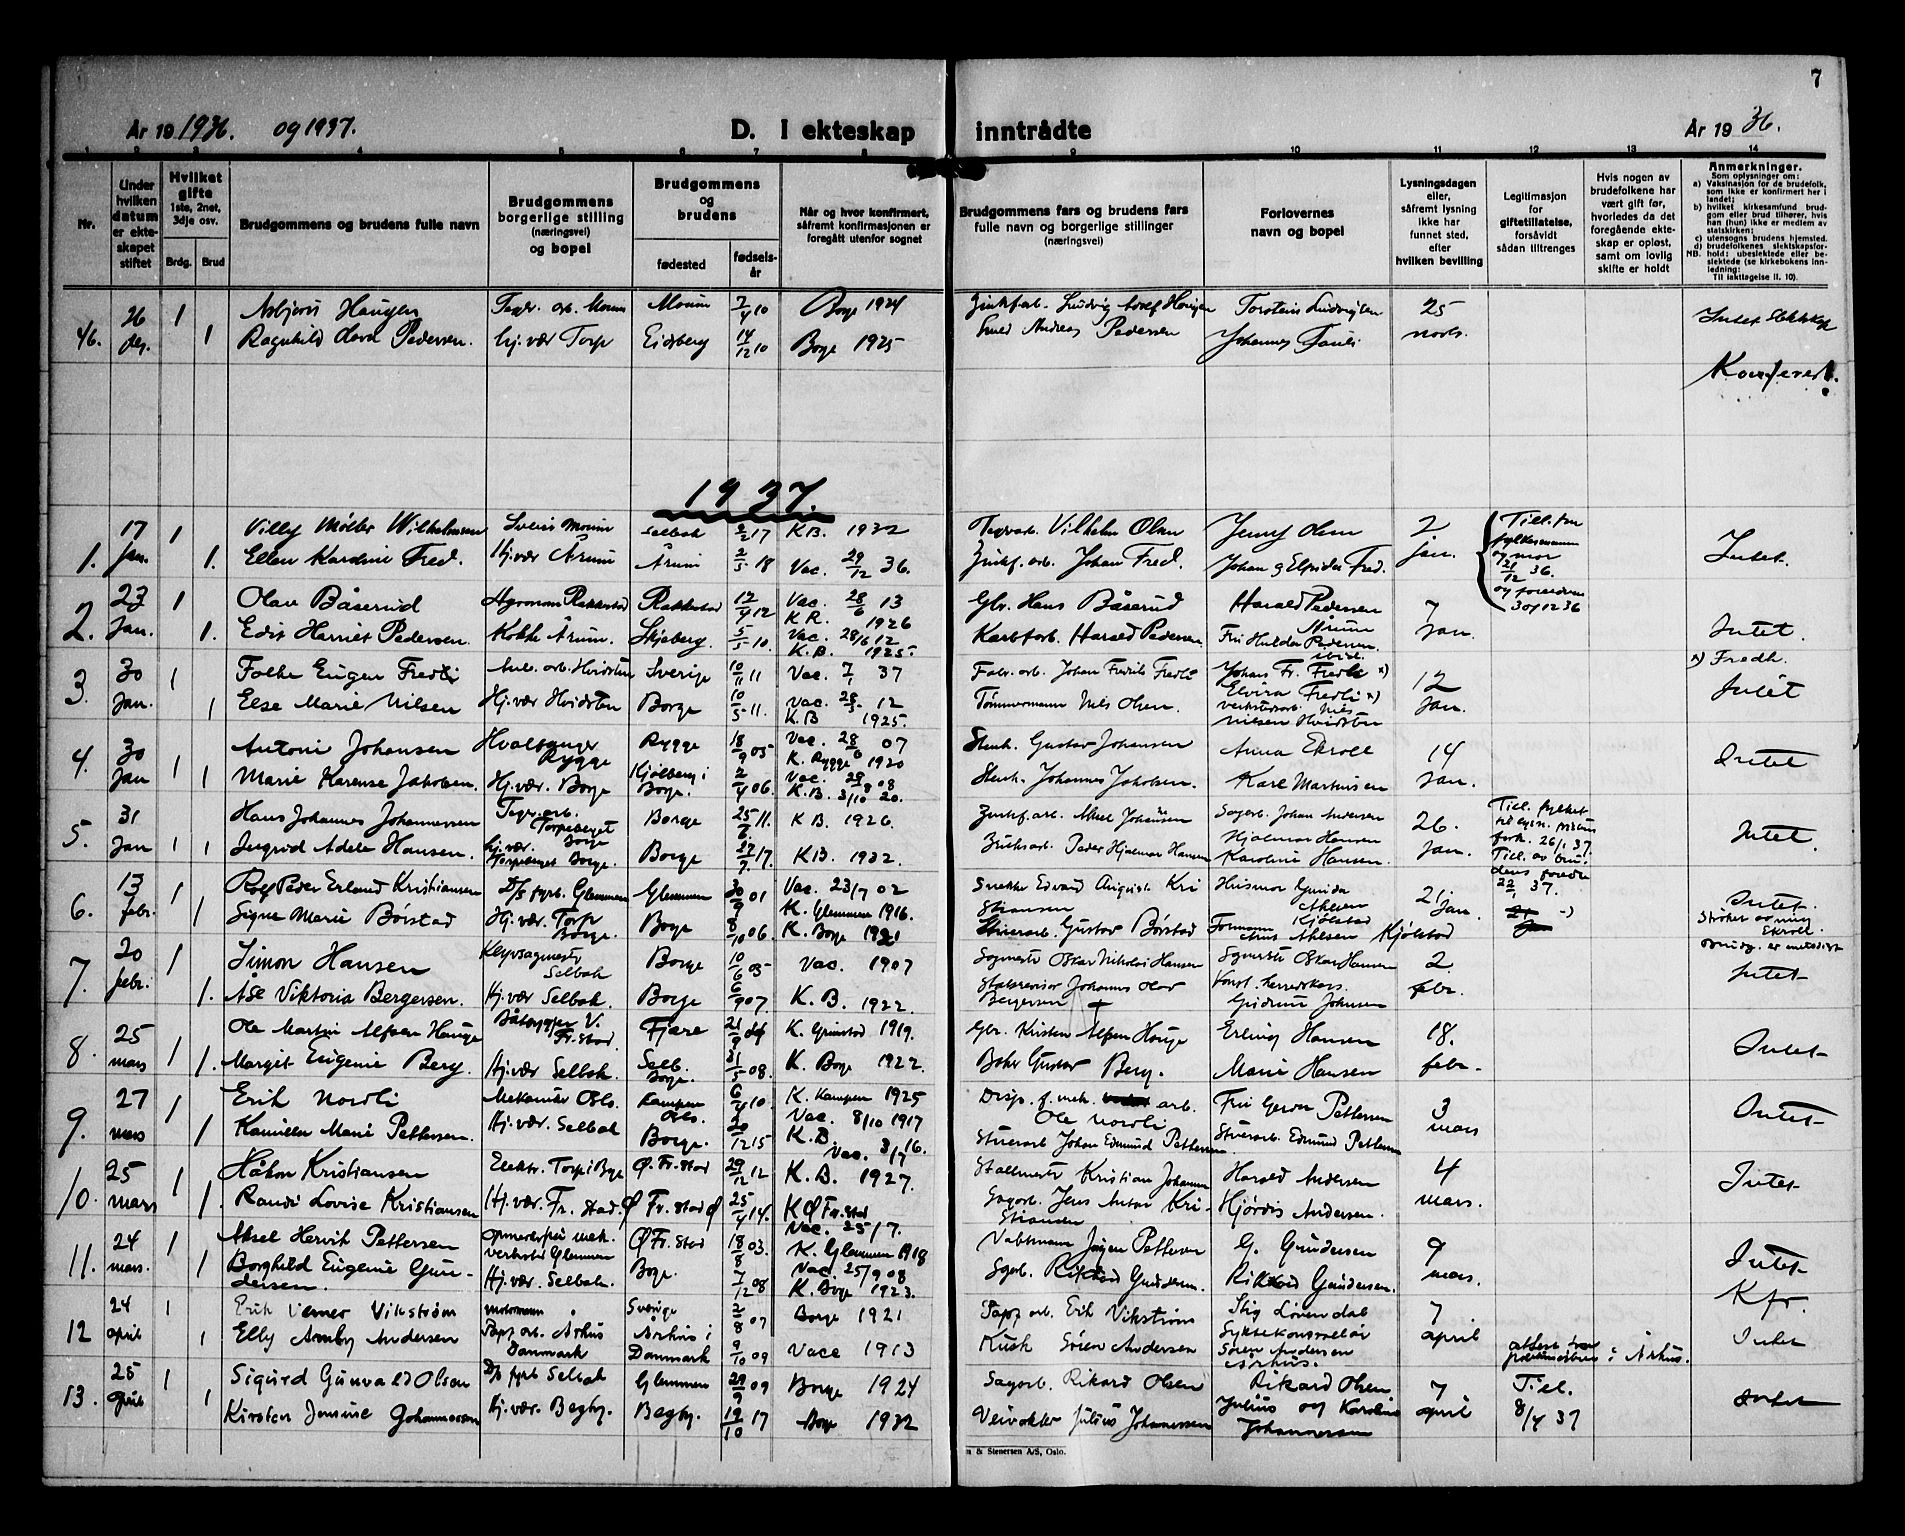 7
År 19 1936. og 1937.
D. I ekteskap inntrådte
År 19 36.
1 2 3 4 5 6 7 8 9 10 11 12 13 14
Nr.
Under hvilken datum er ekteskapet stiftet
Hvilket gifte
1ste, 2net, 3dje osv.
Brdg. Brud
Brudgommens og brudens fulle navn
Brudgommens borgerlige stilling (næringsvei) og bopel
Brudgommens og brudens
fødested
fødselsår
Når og hvor konfirmert, såfremt konfirmasjonen er foregått utenfor sognet
Brudgommens fars og brudens fars fulle navn og borgerlige stillinger (næringsvei)
Forlovernes navn og bopel
Lysningsdagen eller, såfremt lysning ikke har funnet sted, efter hvilken bevilling
Legitimasjon for giftetillatelse, forsåvidt sådan tiltrenges
Hvis nogen av brudefolkene har vært gift før, hvorledes da det foregående ekteskap er opløst, samt om lovlig skifte er holdt
Anmerkninger.
Som oplysninger om:
a) Vaksinasjon for de brudefolk, som ikke er konfirmert her i landet;
b) hvilket kirkesamfund brudgom eller brud tilhører, hvis han (hun) ikke er medlem av statskirken;
c) utensogns brudens hjemsted.
d) brudefolkenes slektskapsforhold: ubeslektede eller beslektede (se kirkebokens innledning:
NB. Til iakttagelse II, 10).
26 1 Asbjørn Haugen Tegv. arb. Moum Moum 2/4 10 Borge 1924 Zinkfarb. Ludvig Adolf Haugen Torstein Ludvigsen 25 Intet slektskap
46. des. 1 Ragnhild Pedersen. hj. vær Torp Eidsberg 14/12 10 Borge 1925 Smed Andreas Pedersen Johannes novb.
Konferert!
1937.
17 1 Villy Møller Wilhelmsen Moum Selbak 2/2 17 K.B. 1932 Vilhelm Olsen Jenny Olsen 2
1. Jan. 1. Ellen Karoline Fred. Hj.vær Årum Årum 2/5 18 Vac. 29/12 36. Zinkf. arb. Johan Fred. Johan og Elfrida Fred. jan. Intet.
Till. fra fylkesmann og mor 21/12 36. og foreldren 30/12 36
23 1 Olav Båserud Agronom Rakkestad Rakkestad 12/4 12 Vac. 28/6 13 Gbr. Hans Båserud Harald Pedersen 7
K.R. 1926 Årum
2. Jan. 1. Edit Harriet Pedersen. Kokke Årum. Skjeberg. 5/5 10. Vac. 28/6 12 Karbfarb. Harald Pedersen Fru Hulda Pedersen Jan. Intet.
K.B. 1925.
x) Fredh.
30 1 Folke Eugen Fredli Anl. arb. Hvidsten Sverige 10/11 11 Vac. 7/1 37 Fabr. arb. Johan Fredrik Fredli Johan Fr. Fredli x) 12
Elvira Fredli x)
3. Jan. 1 Else Marie Nilsen Hj.vær Hvidsten Borge 10/5 11. Vac. 28/5 12 Tømmermann Nils Olsen. verkstedarb. Nils Nilsen Hvidsten Jan. Intet
K.B 1925.
30 Antoni Johansen Hvalfanger Rygge Rygge 18/9 05 Vac. 28/6 07 Stenh. Gustav Johansen Anna Ekroll 14 Intet
K. Rygge 1920
4. Jan 1 1 Marie Harense Jakobsen Hj.vær. Borge Kjølberg i Borge. 2/4 06. Vac. 29/8 08 Stenh. Johannes Jakobsen Karl Martinsen Jan.
K.B. 3/10 20.
31 Hans Johannes Johannessen Tegv. arb. Torpeberget Borge Borge 25/7 11. K B. 1926. Zinkf. arb. Aksel Johansen Sagarb. Johan Andersen 26.
5. Jan 1 1 Ingrid Adele Hansen. hj. vær. Torpeberget Borge. Borge 27/7 17. K.B. 1932. Peder Hjalmar Hansen Hjalmar Hansen Karoline Hansen. Jan. Intet.
Till. fylket 26/1 37. Till. av brudens foreldre 22/1 37.
13 1 Rolf Peder Erland Kristiansen D/s fyrb. Glemmen Glemmen 30/9 01 Vac. 23/7 02 Snekker Edvard August Kristiansen Husmor Gunda Ahlsen Kjølstad 21/Jan. Intet.
K. Glemmen 1916.
6. febr. 1 Signe Marie Børstad Hj.vær. Torp Borge. Borge 8/10 06. K. Borge 1921 Stuerarb. Gustav Børstad Formann Ahlsen Kjølstad
Strøket av mig Ekroll
Brudg. er metodist
20 1 Simon Hansen Selbak Borge 10/6 05 Vac. 1907 Sagmester Oskar Nikolai Hansen Sagmester Oskar Hansen 2.
7. febr. 1. Åse Viktoria Bergersen. Hj.vær Selbak. Borge 6/9 07. K. B. 1922. Johannes Olav Bergersen Gudrun Johnsen febr. Intet
25 Ole Martin Alfsen Hauge Båtbygger V. Fr.stad. Fjære 21/9 K. Grimstad 1919. Gbr. Kristen Alfsen Hauge Erling Hansen 18.
8. mars 1 1. Margit Eugenie Berg. Hj.vær Selbak. Selb. Borge. 31/5 08. K. Borge 1922. Baker Gustav Berg. Marie Hansen febr. Intet
27 1 Erik Nordli Mekaniker Oslo. Kampen Oslo. 6/4 10 K. Kampen 1925 Disp. f. mek. arb. Ole Nordli Fru Gerda Pettersen 3 Intet
Vac. 8/10 1917
9. mars 1 Kamilla Marie Pettersen. Hj.vær. Selbak Borge. 12 15 K.B. Stuerarb Johan Edmund Pettersen Stuerarb. Edmund Pettersen mars
Vac. 3/7 16.
25 Håkon Kristiansen Elektr. Torp i Bge Ø. Fr.stad 29/12 12 K. B. 1927. Stallmester Kristian Johansen Harald Andersen 4
10. mars 1 1. Randi Lovise Kristiansen Hj.vær. Fr.stad. Ø Fr.stad Ø 25/4 14. K Ø Fr.stad Sagarb. Jens Anton Kristiansen Hjørdis Andersen. mars. Intet
Vac. 25/7.
24 1 Aksel Henrik Pettersen verksted Glemmen Ø Fr.stad 18/8 03. K. Glemmen 1918 Vaktmann Jørgen Pettersen G. Gundersen 9
Vac. 25/9 08
11. mars. 1 Borghild Eugenie Gundersen. Hj.vær Selbak. Borge. 7/12 08 K. Borge 1923. Sagarb. Rikard Gundersen. Rikard Gundersen. mars. Intet
24 1 Erik Verner Vikstrøm Sverige 2/8 07 Borge 1921 Papf arb. Erik Vikstrøm Stig Løvendal 7 Kfr.
12 april 1 Elly Amby Andersen Papf. arb. Århus Danmark Århus i Danmark 9/10 09 Vacc 1913 Kusk Søren Andersen Søren Andersen Århus. april i Århus. Intet
25 1 Sigurd Gunvald Olsen D/s fyrb Selbak Glemmen 29/9 09 Borge 1924 Sagarb. Rikard Olsen Rikard Olsen 7 Till.
13. april 1 Kirsten Jensine Johannessen Hj.vær. Begby. Begby. 19/10 17 Borge 1932 Veivokter Julius Johannessen Julius og Karoline Johannessen april 8/4 37 Intet
n & Stenersen A/S, Oslo.